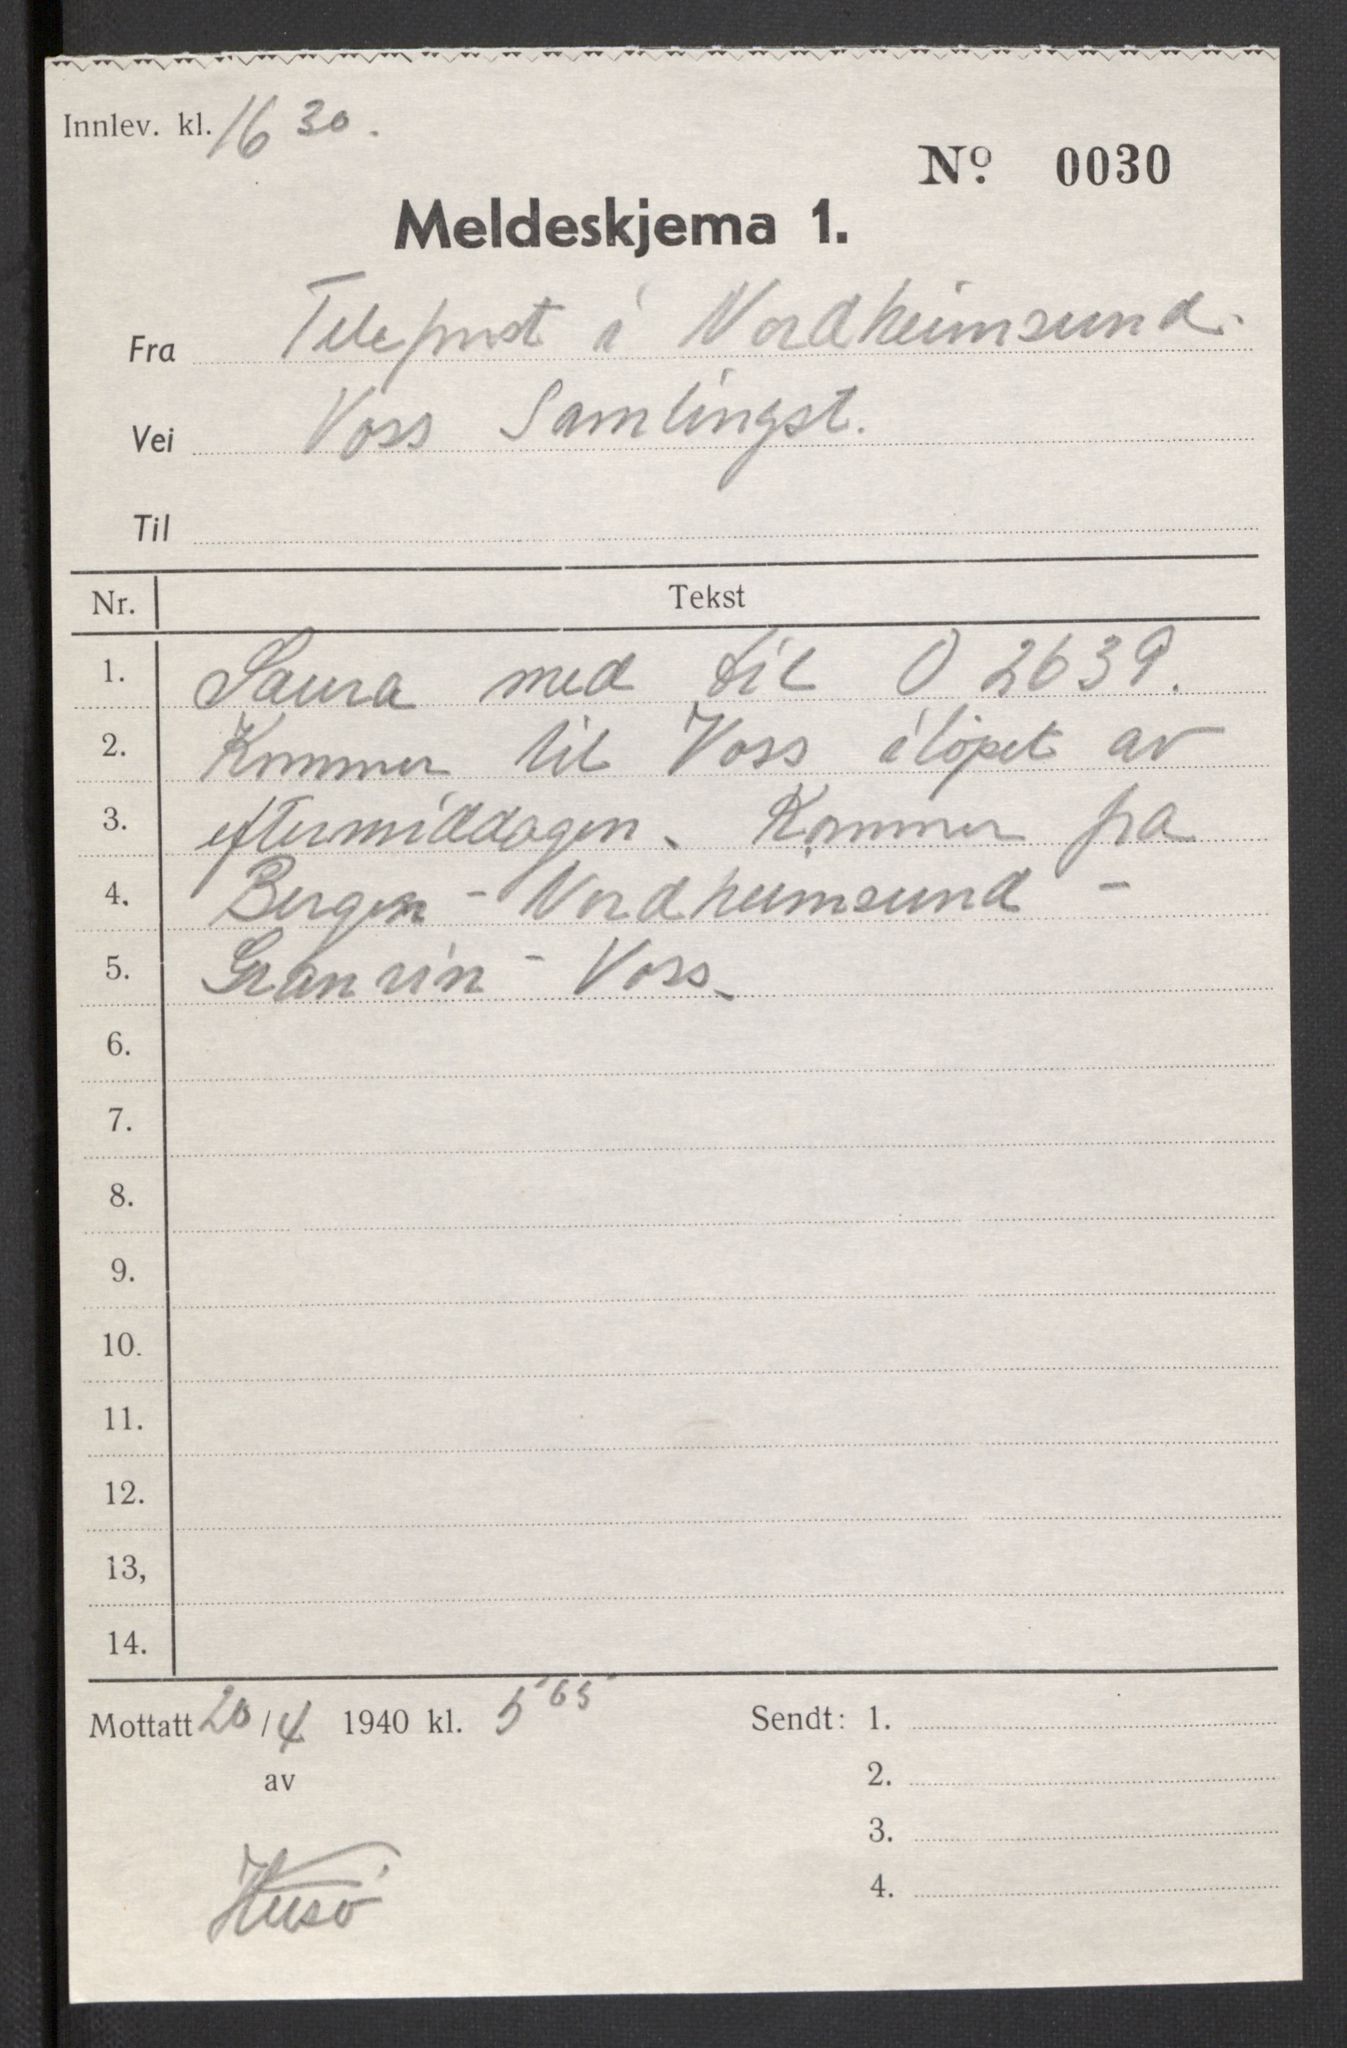 Innlev. kl. 16 30.
No 0030
Meldeskjema 1.
Fra Telepost i Nordheimsund.
Vei Voss Samlingst.
Til
Nr. Tekst
1. Saura med bil O 2639.
2. Kommer til Voss iløpet av
3. eftermiddagen. Kommer fra
4. Bergen - Nordheimsund -
5. Granvin - Voss.
6.
7.
8.
9.
10.
11.
12.
13,
14.
Mottatt 20/4 1940 kl. 5 05 Sendt: 1.
av 2.
3.
4.
Husø